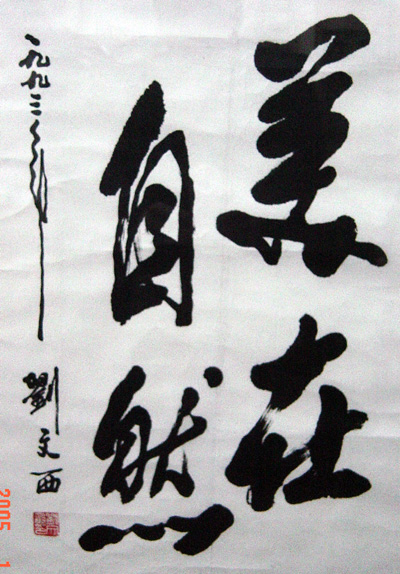 美在
自然
一九九三年
劉文西
2005 1